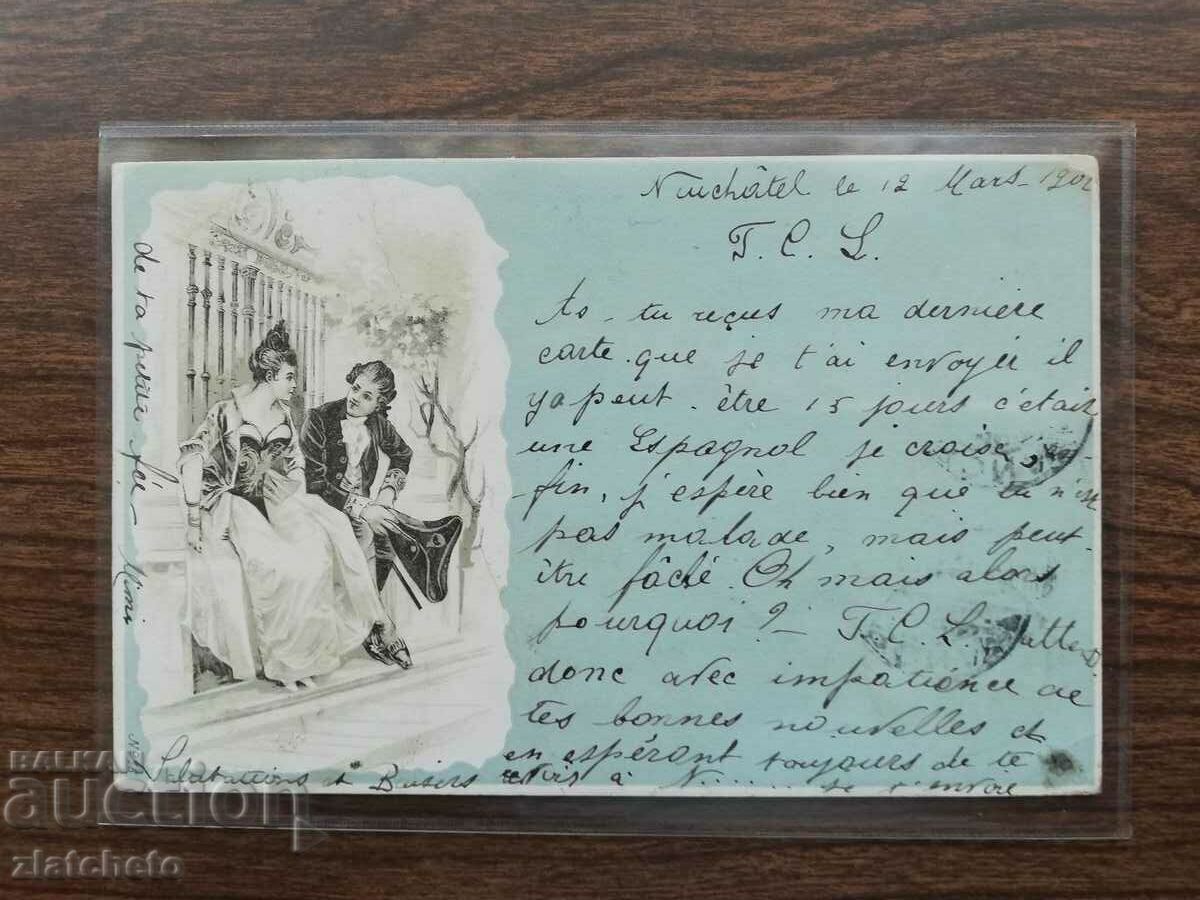 Neuchâtel le 12 Mars 190
T. C. L.
As-tu reçus ma dernière
carte que je t'ai envoyér il
y a peut-être 15 jours c'était
une Espagnol je crois, en-
fin, j'espère bien que tu n'est
pas malade, mais peut-
être fâché. Oh mais alors
pourquoi? - T. C. L. j'attend
donc avec impatience de
tes bonnes nouvelles et
en espérant toujours de te
revoir à N..... je t'envoie
Salutations et Baisers
de ta petite
Mimi
BALKAN
auction
zlatcheto